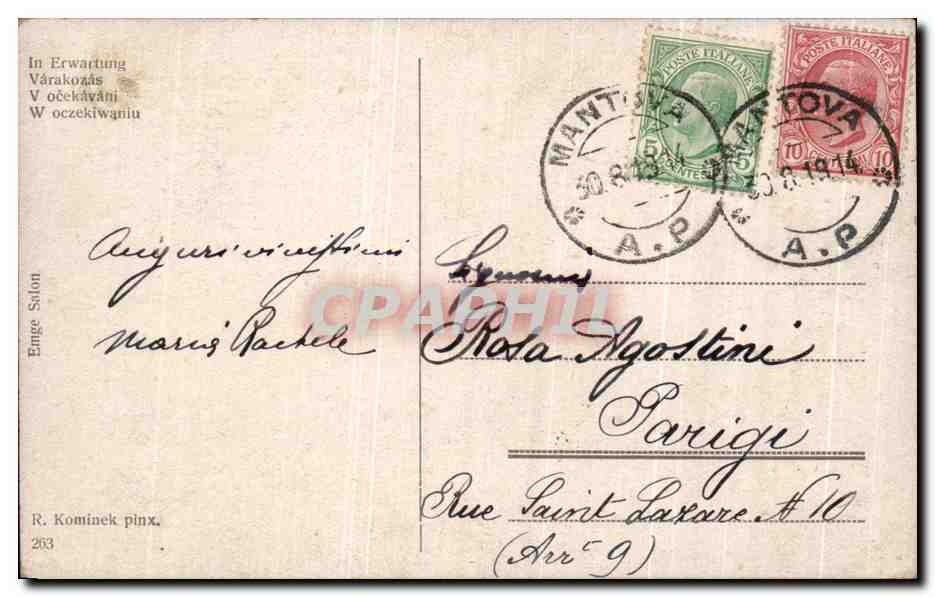 In Erwartung
Várakozás
V očekávání
W oczekiwaniu
POSTE ITALIANE
POSTE ITALIANE
5 CENTES. 5
10 10
MANTOVA
30.8.18.14
A.P
MANTOVA
30.8.18.14
A.P
Auguri vivissimi
Maria Rachele
Signorina
Rosa Agostini
Parigi
Rue Saint Lazare N 10
(Arr. 9)
Emge Salon
R. Kominek pinx.
263
CPAPHIL